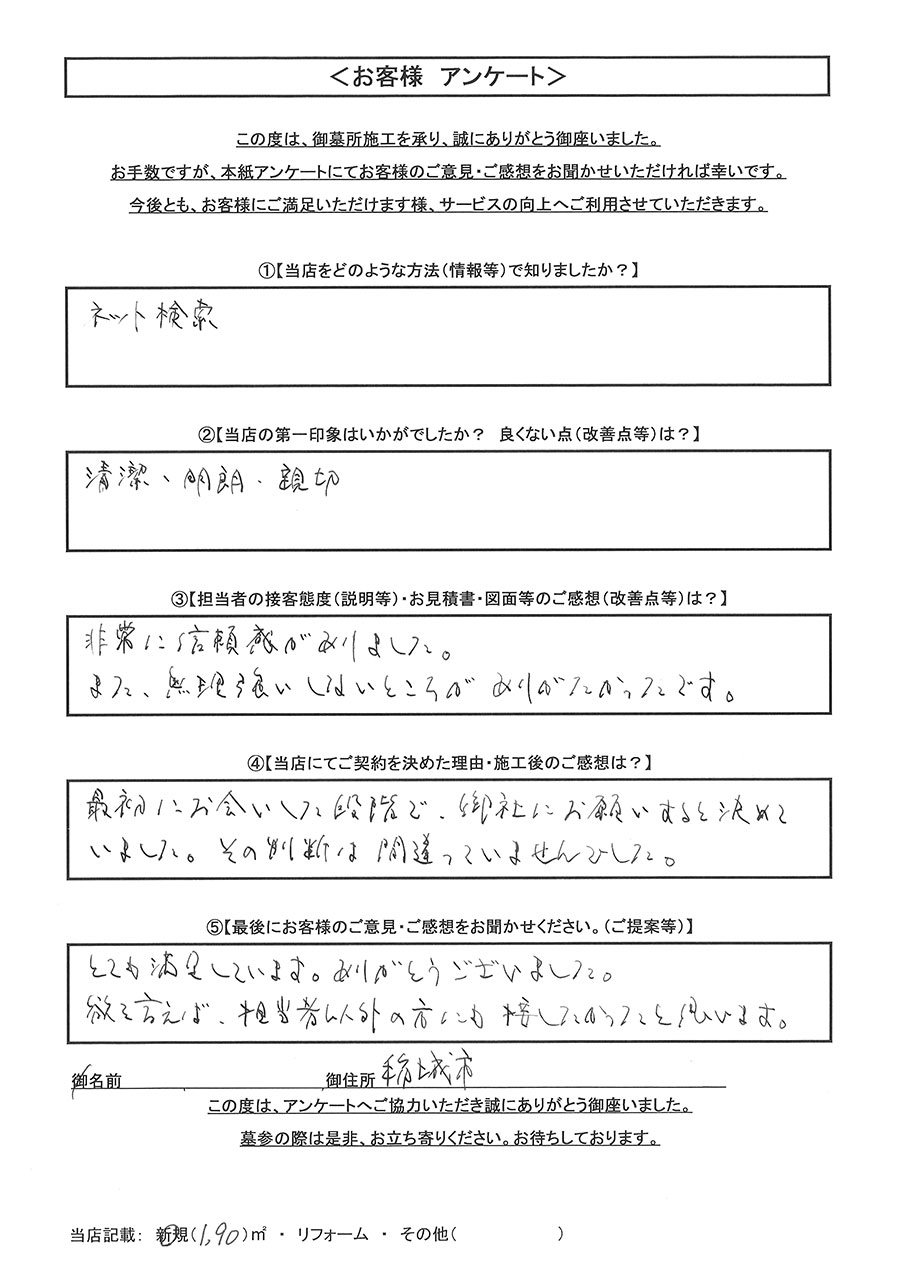 ＜お客様　アンケート＞
この度は、御墓所施工を承り、誠にありがとう御座いました。
お手数ですが、本紙アンケートにてお客様のご意見・ご感想をお聞かせいただければ幸いです。
今後とも、お客様にご満足いただけます様、サービスの向上へご利用させていただきます。
①【当店をどのような方法（情報等）で知りましたか？】
ネット検索
②【当店の第一印象はいかがでしたか？　良くない点（改善点等）は？】
清潔、明朗、親切
③【担当者の接客態度（説明等）・お見積書・図面等のご感想（改善点等）は？】
非常に信頼感がありました。
また、無理強いしないところがありがたかったです。
④【当店にてご契約を決めた理由・施工後のご感想は？】
最初にお会いした段階で、御社にお願いすると決めて
いました。その判断は間違っていませんでした。
⑤【最後にお客様のご意見・ご感想をお聞かせください。（ご提案等）】
とても満足しています。ありがとうございました。
欲を言えば、担当者以外の方にも接したかったと思います。
御名前　御住所 稲城市
この度は、アンケートへご協力いただき誠にありがとう御座いました。
墓参の際は是非、お立ち寄りください。お待ちしております。
当店記載：　新規（1,90）㎡　・　リフォーム　・　その他（　　　　　）